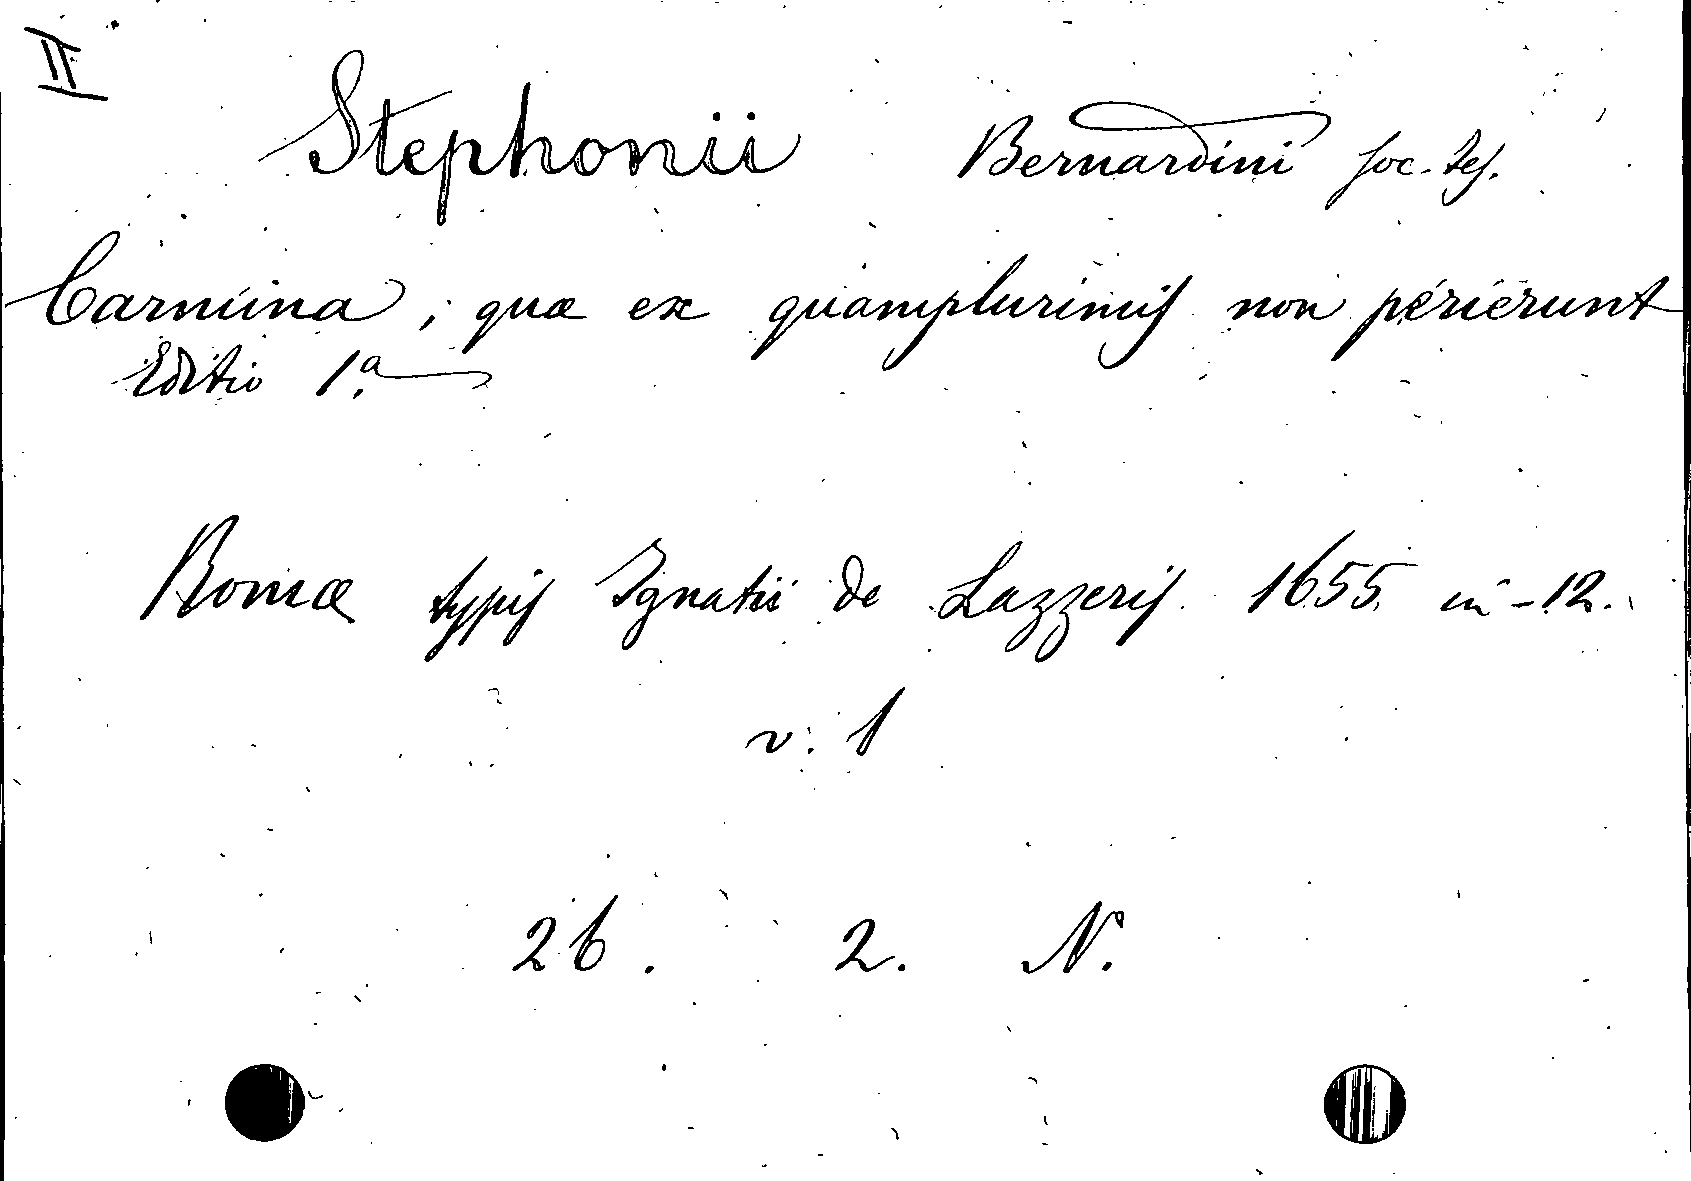 II
Stephonii Bernardini soc. Jes.
Carmina, quæ ex quamplurimis non perierunt
Editio 1.a
Romæ typis Ignatii de Lazzeris 1655 in-12.
v. 1
26. 2. N.